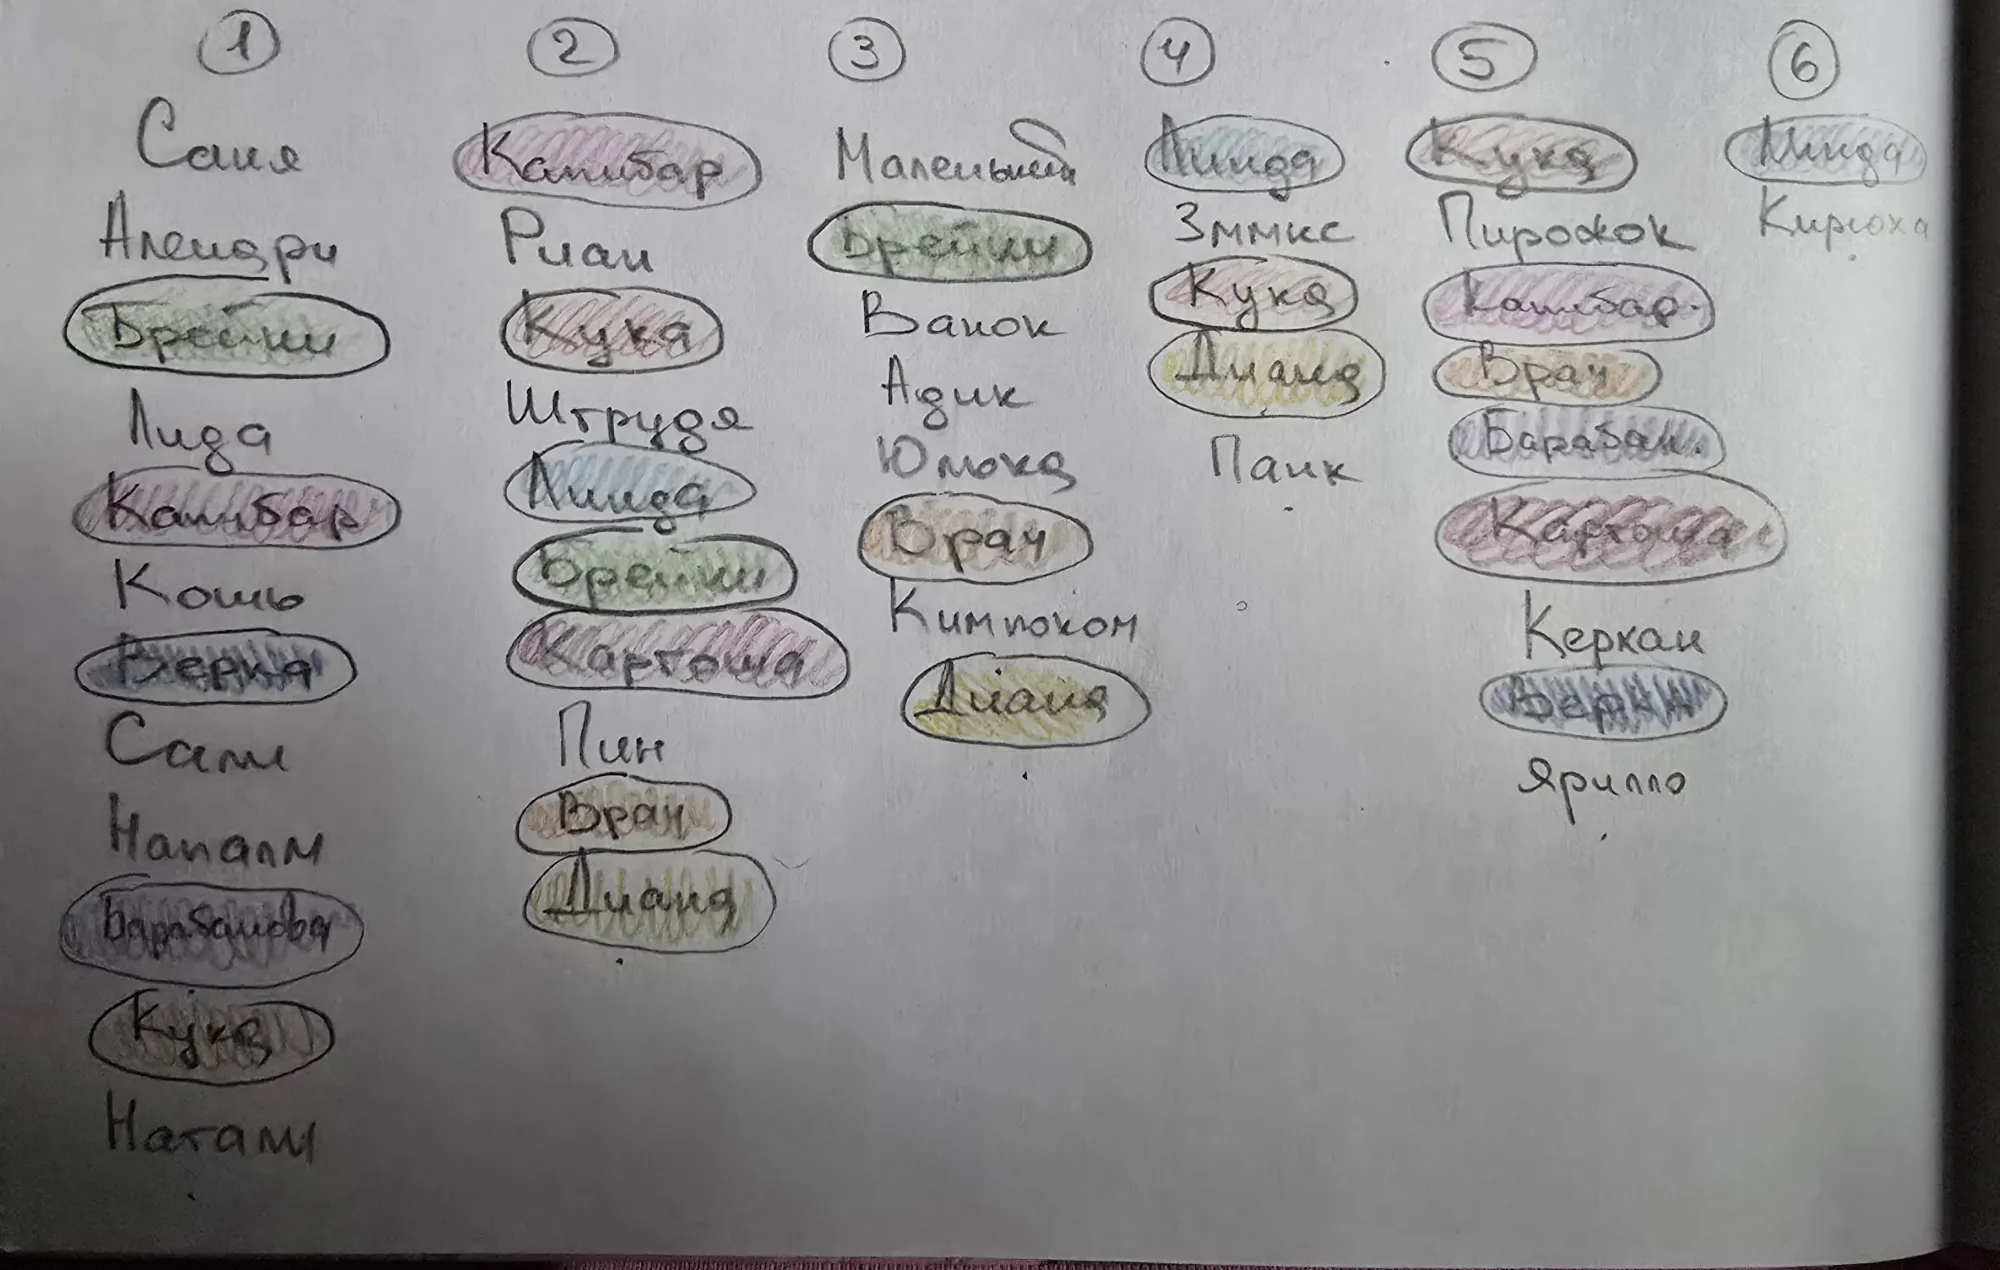 1
Саня
Алендри
Брейни
Лида
Калибар
Кошь
Верка
Сали
Напалм
Барабанова
Кука
Натали
2
Калибар
Риан
Кука
Штрудя
Линда
Брейни
Картоша
Пин
Врач
Диана
3
Маленький
Брейни
Ванок
Адик
Юмока
Врач
Кимпоком
Диана
4
Линда
Зммкс
Кука
Диана
Панк
5
Кука
Пирожок
Калибар.
Врач
Барабан.
Картоша
Керкан
Верка
Ярилло
6
Линда
Кирюха